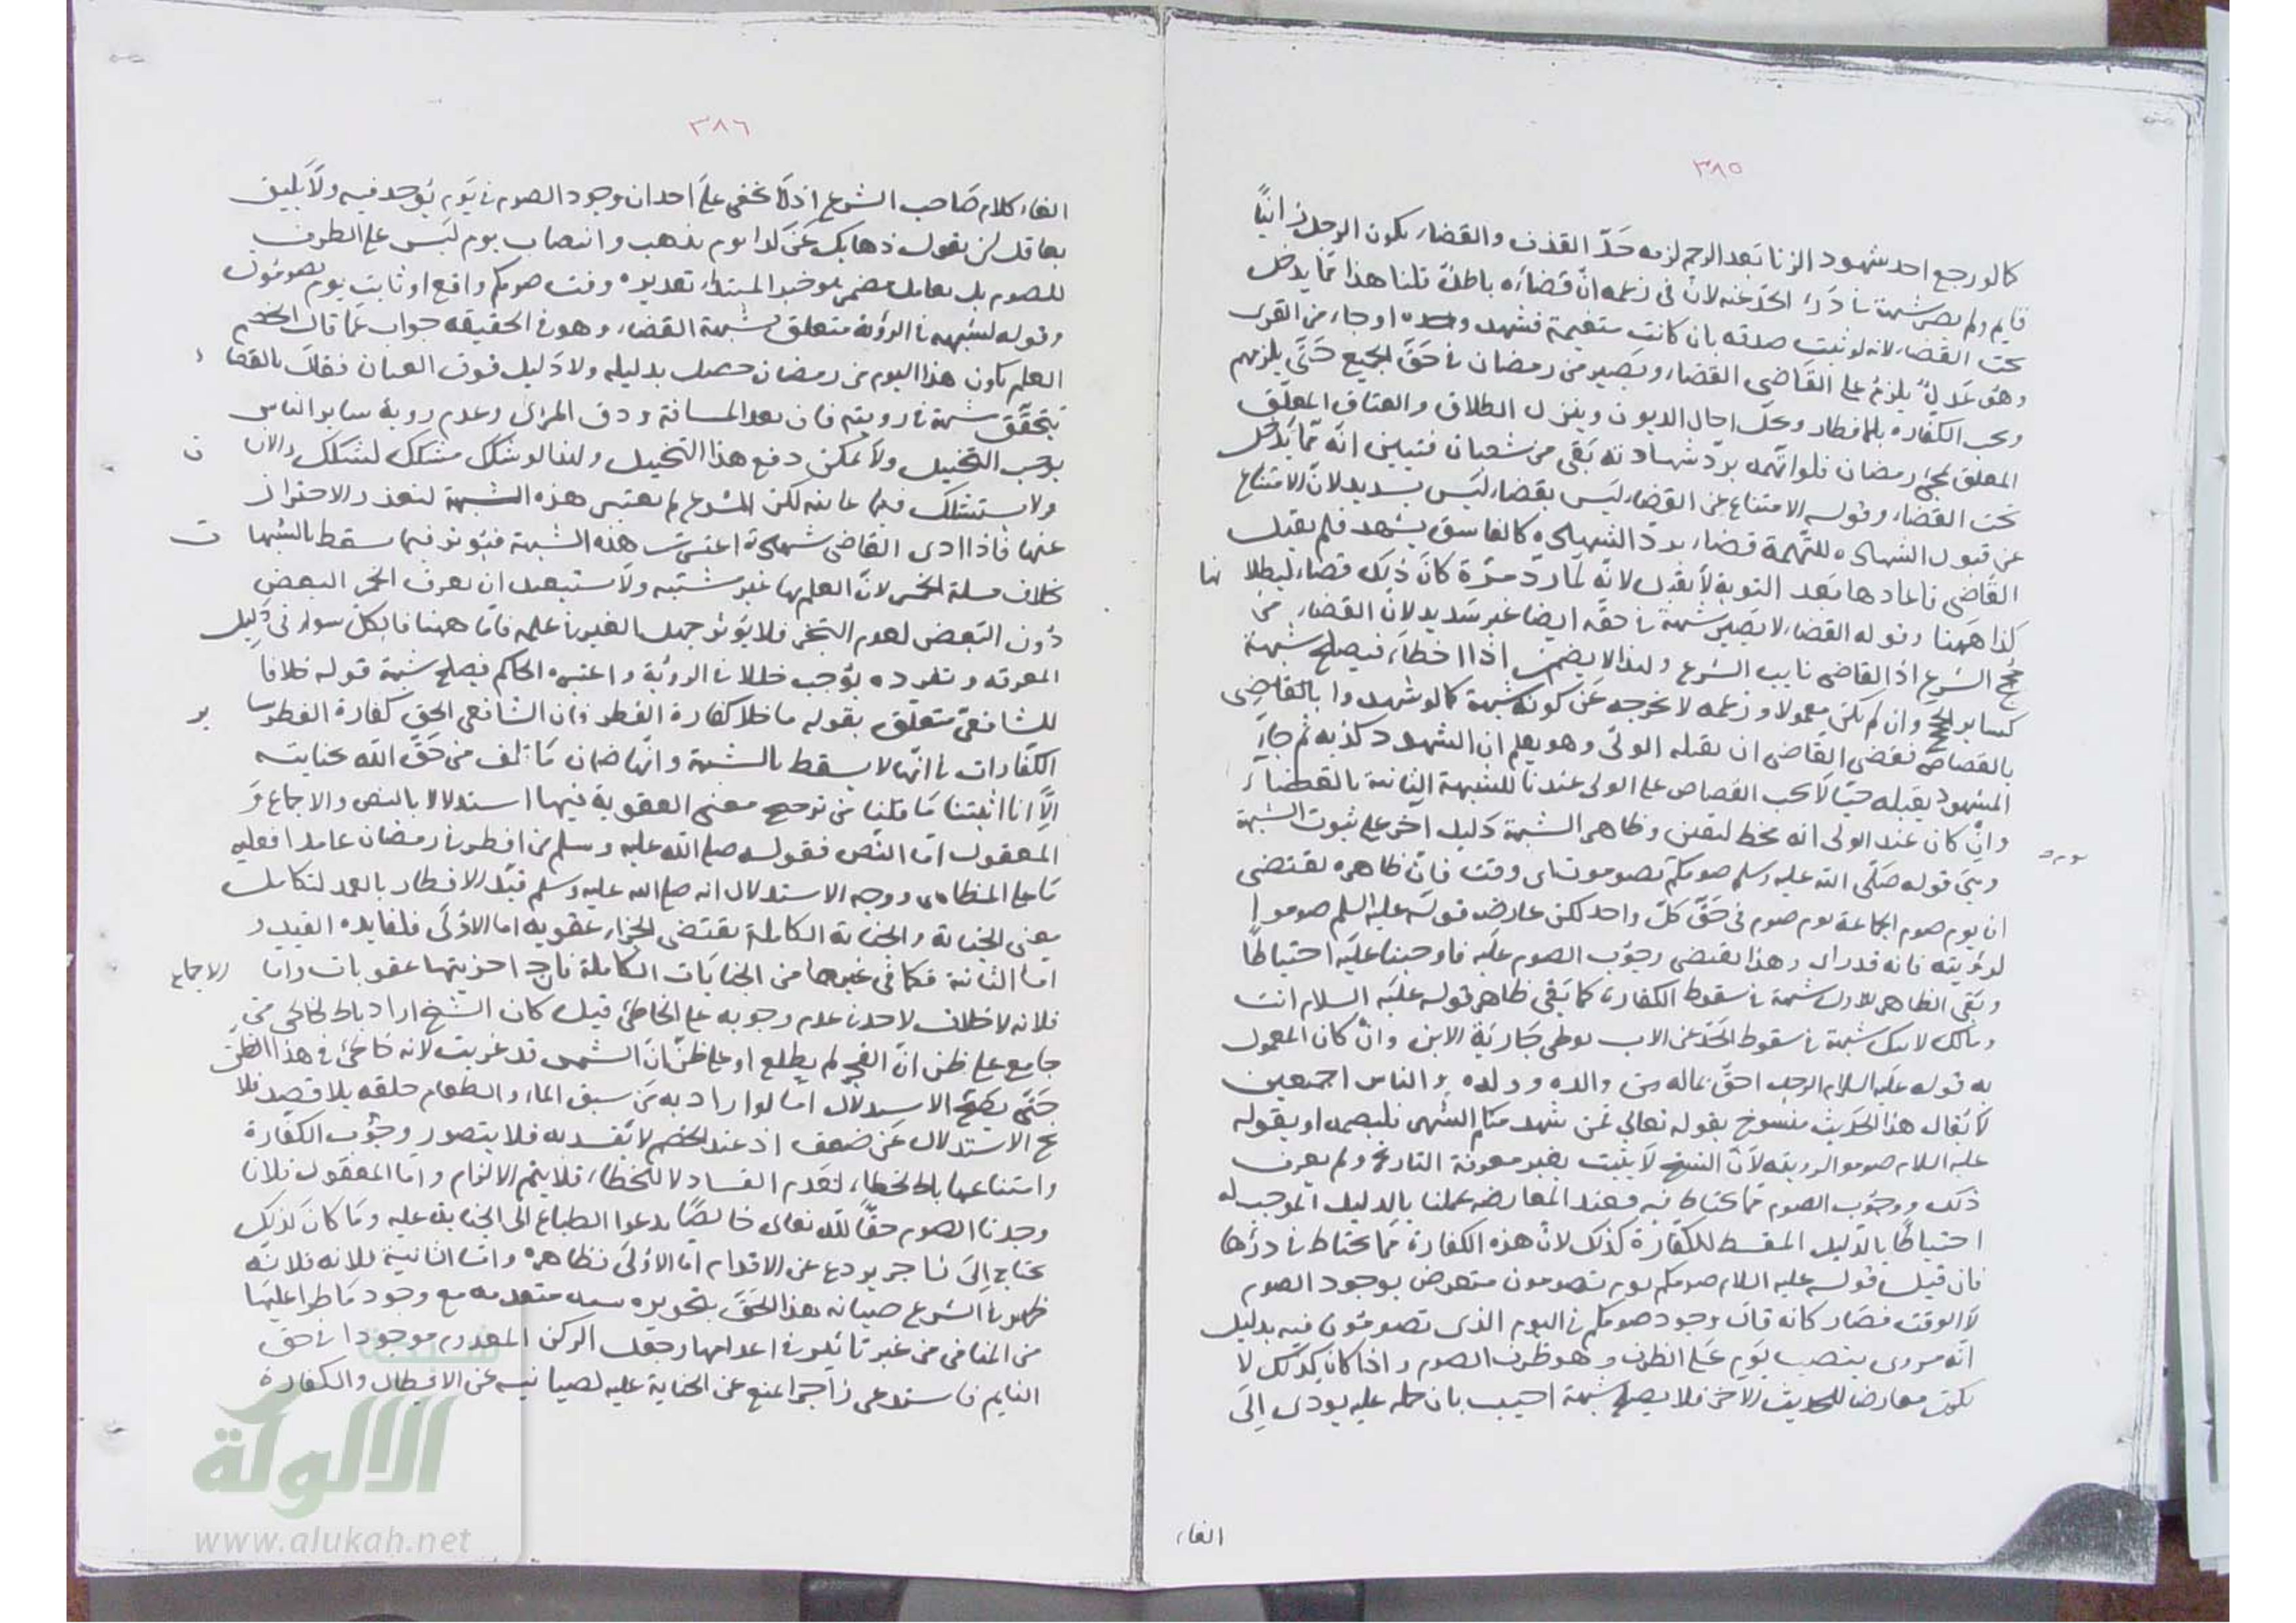 ٣٨٥
كما لو رجع احد شهود الزنا بعد الرجم لزمه حدّ القذف والقضاء بكون الرجل زانيًا
قايم ولم يصر شبهة في درء الحد عنه لان في زعمه انّ قضاءه باطل قلنا هذا ممّا يدخل
تحت القضاء لانه لو ثبت صدقه بان كانت متغيمة فشهد وحده او جاء من القرى
وهو عَدلٌ يلزم على القاضى القضاء ويصير من رمضان في حَقّ الجميع حَتّى يلزمهم
ويجب الكفاره بالافطار ويحلّ اجال الديون وينزل الطلاق والعتاق المعلّق
المعلق بمجئ رمضان فلو اتّهمه بردّ شهادته بَقى من شعبان فتبين انّه ممّا يدخل
تحت القضاء وقوله الامتناع عن القضاء ليَس بقضاء ليَس بسديد لانّ الامتناع
عن قبول الشهاده للتّهمة قضاء بردّ الشهاده كالفاسق يشهد فلم يقبل
القاضى فاعادها بَعد التوبة لاَ يقبل لانّه لمّا ردّ مرّة كانَ ذلِك قضاء ليبطلا نها
كذا ههنا وقوله القضاء لا يَصير شبهة في حقّه ايضا غير سَديد لانّ القضاء من
حجج الشرع اذ القاضى نايب الشرع ولهذا لا يضمن اذا اخطاَء فيصلح شبهة
كساير الحجج وان لم يكن معمولا وزعمه لا يخرجه عَن كونه شبهة كما لو شهدوا بالقَاضِى
بالقصاص فقضى القَاضى ان بقتله الولىّ وهو يعلم ان الشهود كذبه ثم جاءَ
المشهود بقتله حيّا لاَ يجب القصاص على الولى عندنا للشبهة الثانية بالقضاء
وانّ كان عند الولى انه مخط ليقين وظاهر الشبهة دَليل آخر على ثبوت الشبهة
وهى قوله صَلّى الله عليه وسلم صومكم تصومون اى وقت فانّ ظاهره يقتضى
ان يوم صوم الجماعة يوم صوم فى حَقّ كلّ واحد لكن عارضه قولَه عليه السلم صوموا
لرؤيته فانه قد راى وهذا يقتضى وجوُب الصوم علَيه فاوجبنا عليَه احتياطًا
وبَقى الظاهر الاول شبهة في سقوط الكفارت كما بَقى ظاهر قوله عليَه السلام انت
ومالك لابيك شبهة في سقوط الحَدّ عن الاب بوطى جَاريَة الابن وانّ كان المعمول
به قوله علَيه السلام الرجل احقّ بماله من والده وولده والناس اجمعين
لاَ يُقال هذا الحَديث منسوخ بقوله تعالى فمَن شهد منكم الشهر فليصمه او بقوله
عليه السلام صوموا لرويته لاَنّ النسخ لاَ يثبت بغير معرفة التاريخ ولم يعرف
ذلك ووجوُب الصوم ممّا يحتاط فيه فعند المعارضه عملنا بالدليل الموجب له
احتياطًا بالدَليل المسقط للكفّارة كذلك لانّ هذه الكفارة ممّا يحتاط في درئها
فان قيل قوله عليه السلام صومكم يوم تصومون متعرض بوجود الصوم
لاَ الوقت فصَار كانه قالَ وجود صومكم في اليوم الذى تصومُون فيه بدليل
انّه مروى بنصب يوَم عَلى الظرف وهو ظرف الصوم واذا كانَ كذلك لا
يكون معارضا للحديث الاخر فلا يصلح شبهة اجيب بان حمله عليه يودى إلى
الغاء
٣٨٦
الغاء كلام صَاحب الشرع اذ لاَ يخفى علَى احد ان وجود الصوم في يَوم يُوجد فيه ولاَ يليق
بعاقل
للصوم بل بعامل مضمر هو خبر المبتداء تقديره وقت صومكم واقع او ثابت يوم تصومُون
وقوله لشبهه في الرؤية متعلق بشبهة القضاء وهو في الحقيقه جواب عمّا قال الخصم
العلم بكون هذا اليوم من رمضان حصل بدليله ولا دَليل فوق العيان فقالَ بالقضا ء
يتحقّق شبهة في رويته فان بعد المسافة ودقة المرئى وعدم روية ساير الناس
يوجب التخييل ولاَ يمكن دفع هذا التخييل ولهذا لو شكك مشكك لتشكك والان ن
ولا يستشكل فيما عاينه لكن الشرع لم يعتبر هذه الشبهة لتعذر الاحتراز
عنها فاذا ادى القاضى شهادة اعتبرت هذه الشبهة فيُوثر فيما يسقط بالشبها ت
بخلاف مسلة الخمر لانّ العلم بها غير مشتبه ولاَ مستبعد ان يعرف الخمر البعض
دُون البَعض لعدم التبحّر فلا يؤثر جهل الغير في علمه فامّا ههنا فالكل سواء فى دَليل
المعرفه وتفرده يؤجب خللا في الرؤية واعتبره الحاكم فيصلح شبهة قوله خلافًا
للشافعىّ متعلّق بقوله ما خلا كفارة الفطر فان الشافعى الحق كفارة الفطر بسا ير
الكفّارات في انّها لا يسقط بالشبهة وانّها ضمان مَا تلف من حَقّ الله بجنايته
الاَّ انا اثبتنا مَا قلنا من ترجيح معنى العقوبة فيها استدلالا بالنص والاجماع وَ
المعقول امّا النّص فقوله صلى الله عليه وسلم من افطر في رمضان عامدا فعليه
مَا على المظاهر ووجه الاستدلال انه صلى الله عليه وسلم قيّد الافطار بالعمد لتكامل
معنى الجناية والجناية الكاملة يقتضى الجزاء عقوبه اما الاوُلى فلفايده القيد و
امّا الثانية فكما فى غيرها من الجنايَات الكاملة فانّ اجزيتها عقوبات وامّا الاجماع
فلانه لا خلاف لاحد في عدم وجوبه على الخاطئ قيل كان الشيخ اراد بالخاطى من
جامع على ظن انّ الفجر لم يطلع او على ظنّ انّ الشمس قد غربت لانه خاطئ فى هذا الظن
حَتّى يصحّ الاستدلال امّا لو اراد به مَن سبق الماء والطعام حلقه بلا قصد فلا
يخ الاستدلال عَن ضعف اذ عند الخصم لا يُفسد به فلا يتصور وجُوب الكفارة
وامتناعها بالخطاء لعَدم الفساد لا للخطاء فلا يتم الالزام وامّا المعقول فلانا
وجدنا الصوم حقّا لله تعالى خالِصًا يدعوا الطباع الى الجناية عليه ومَا كانَ كذلك
يحتاج إلى زاجر يردع عن الاقدام امّا الاوُلى فظاهره وامّا الثانية فلانه فلانّه
من المنافى من غير تاثير في اعدامها وجعل الركن المعدوم موجودا في حق
النايم فاستدعى زاجرا يمنع عن الجناية عليه لصيانته عن الابطال والكفارة
شبكة
الألوكة
www.alukah.net